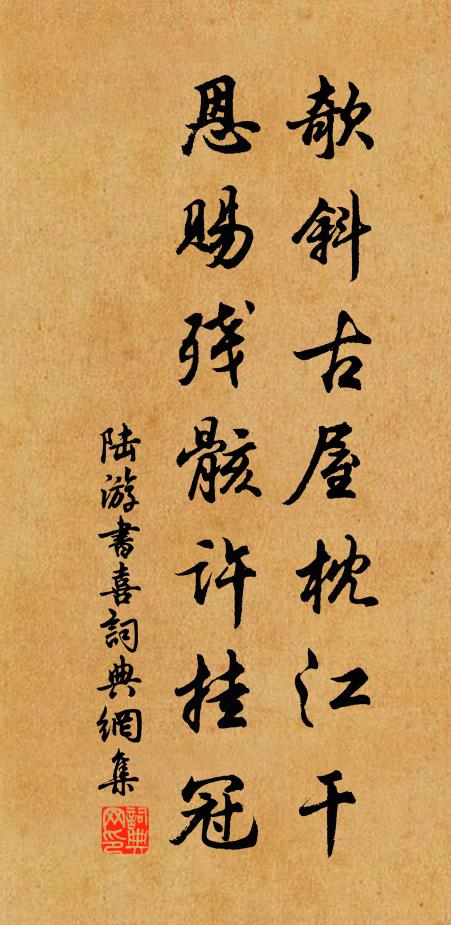 欹斜古屋枕江干
恩賜殘骸許挂冠
陆游書喜詞典網集
詞典网印